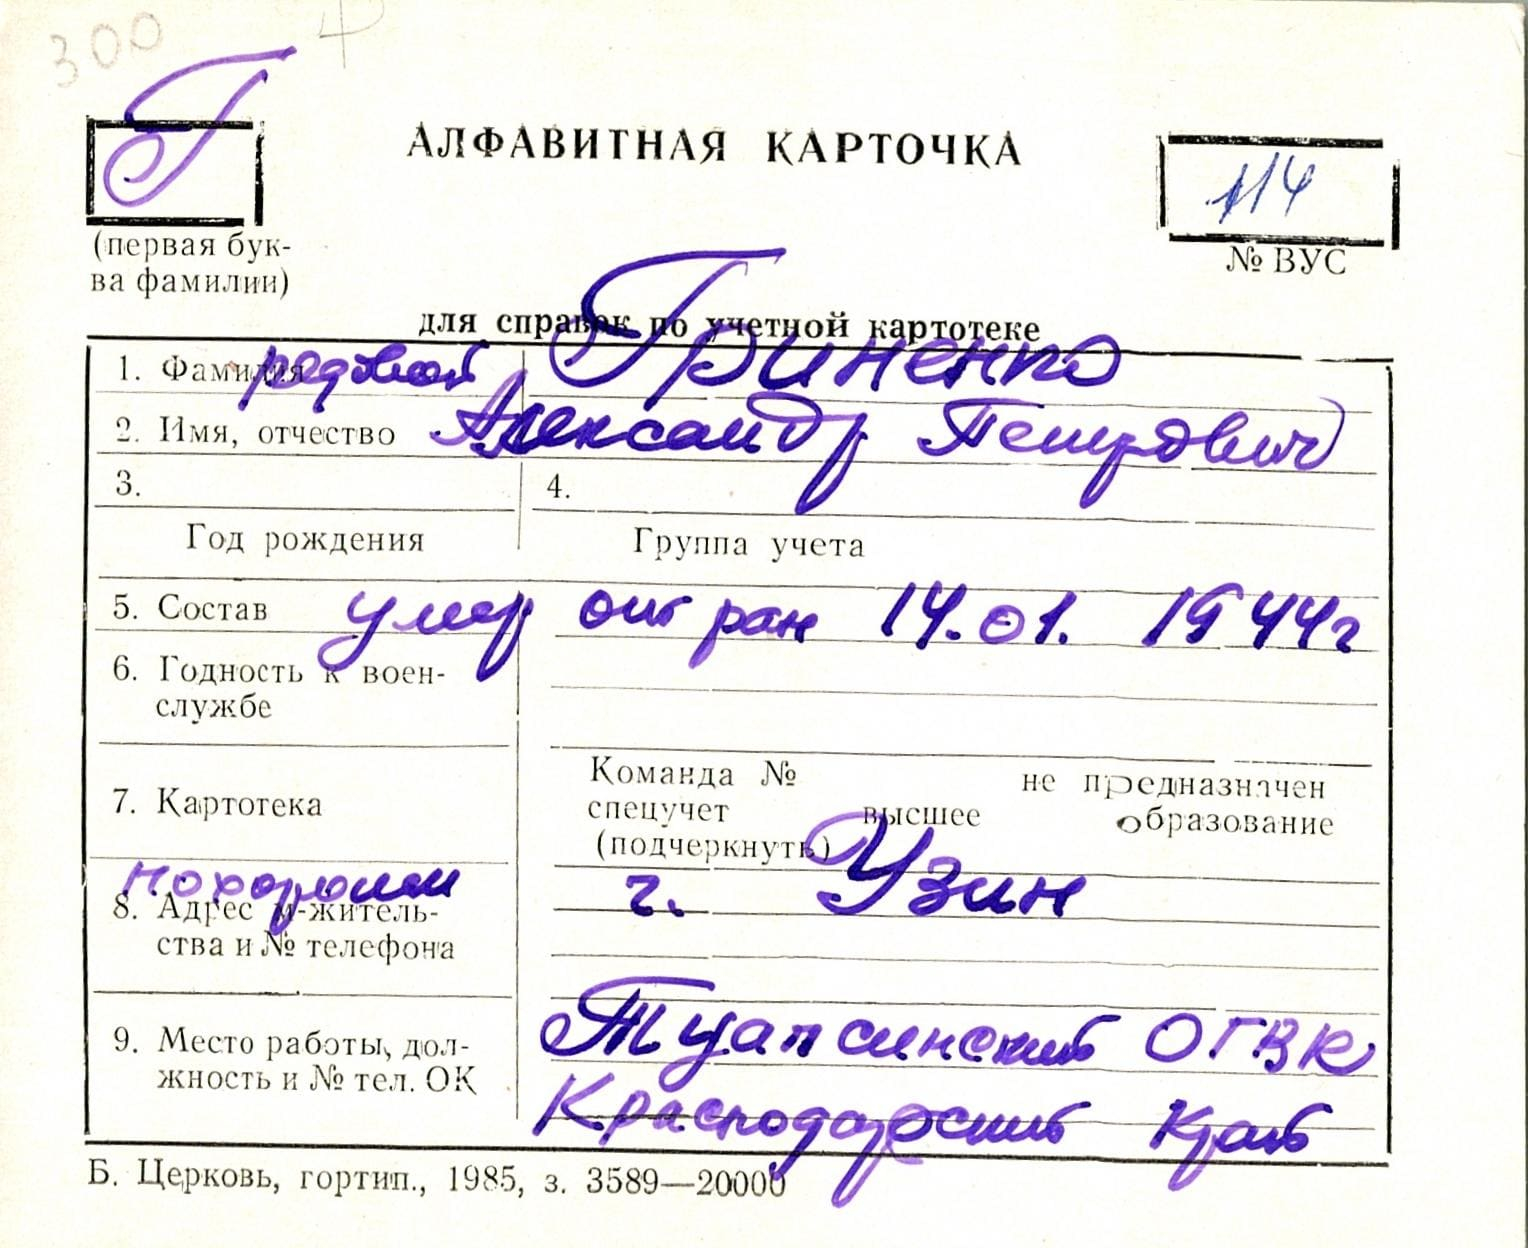 300
Г
АЛФАВИТНАЯ КАРТОЧКА
114
(первая бук-
ва фамилии)
№ ВУС
для справок по учетной картотеке
1. Фамилия рядовой Гриненко
2. Имя, отчество Александр Петрович
3. 4.
Год рождения Группа учета
5. Состав умер от ран 14.01. 1944г
6. Годность к воен-
службе
7. Картотека
Команда № не предназначен
спецучет высшее образование
(подчеркнуть)
похоронен г. Узин
8. Адрес м-житель-
ства и № телефона
9. Место работы, дол-
жность и № тел. ОК
Туапсинский ОГВК
Краснодарский край
Б. Церковь, гортип., 1985, з. 3589—20000